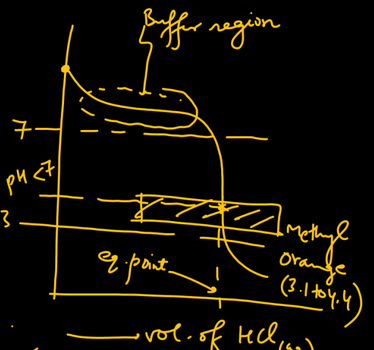 Buffer region
7
pH <7
3
Methyl
Orange
(3.1 to 4.4)
eq. point
vol. of HCl (aq)